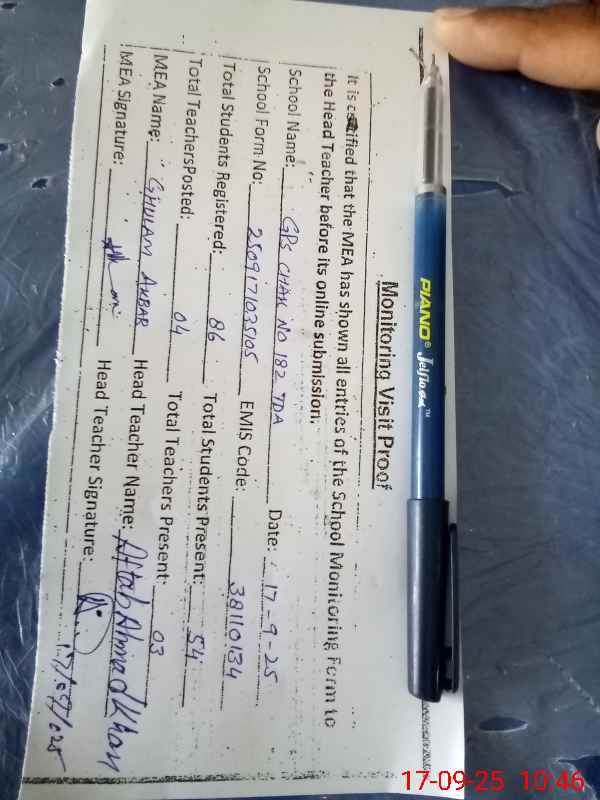 Monitoring Visit Proof
It is certified that the MEA has shown all entries of the School Monitoring Form to
the Head Teacher before its online submission.
School Name: GPS CHAK NO 182 TDA Date: 17-9-25
School Form No: 2509171035105 EMIS Code: 38110134
Total Students Registered: 86 Total Students Present: 54
Total TeachersPosted: 04 Total Teachers Present: 03
MEA Name: GHULAM AKBAR Head Teacher Name: Aftab Ahmed Khan
MEA Signature: Head Teacher Signature:
PIANO® Jellwax™
17-09-25 10:46